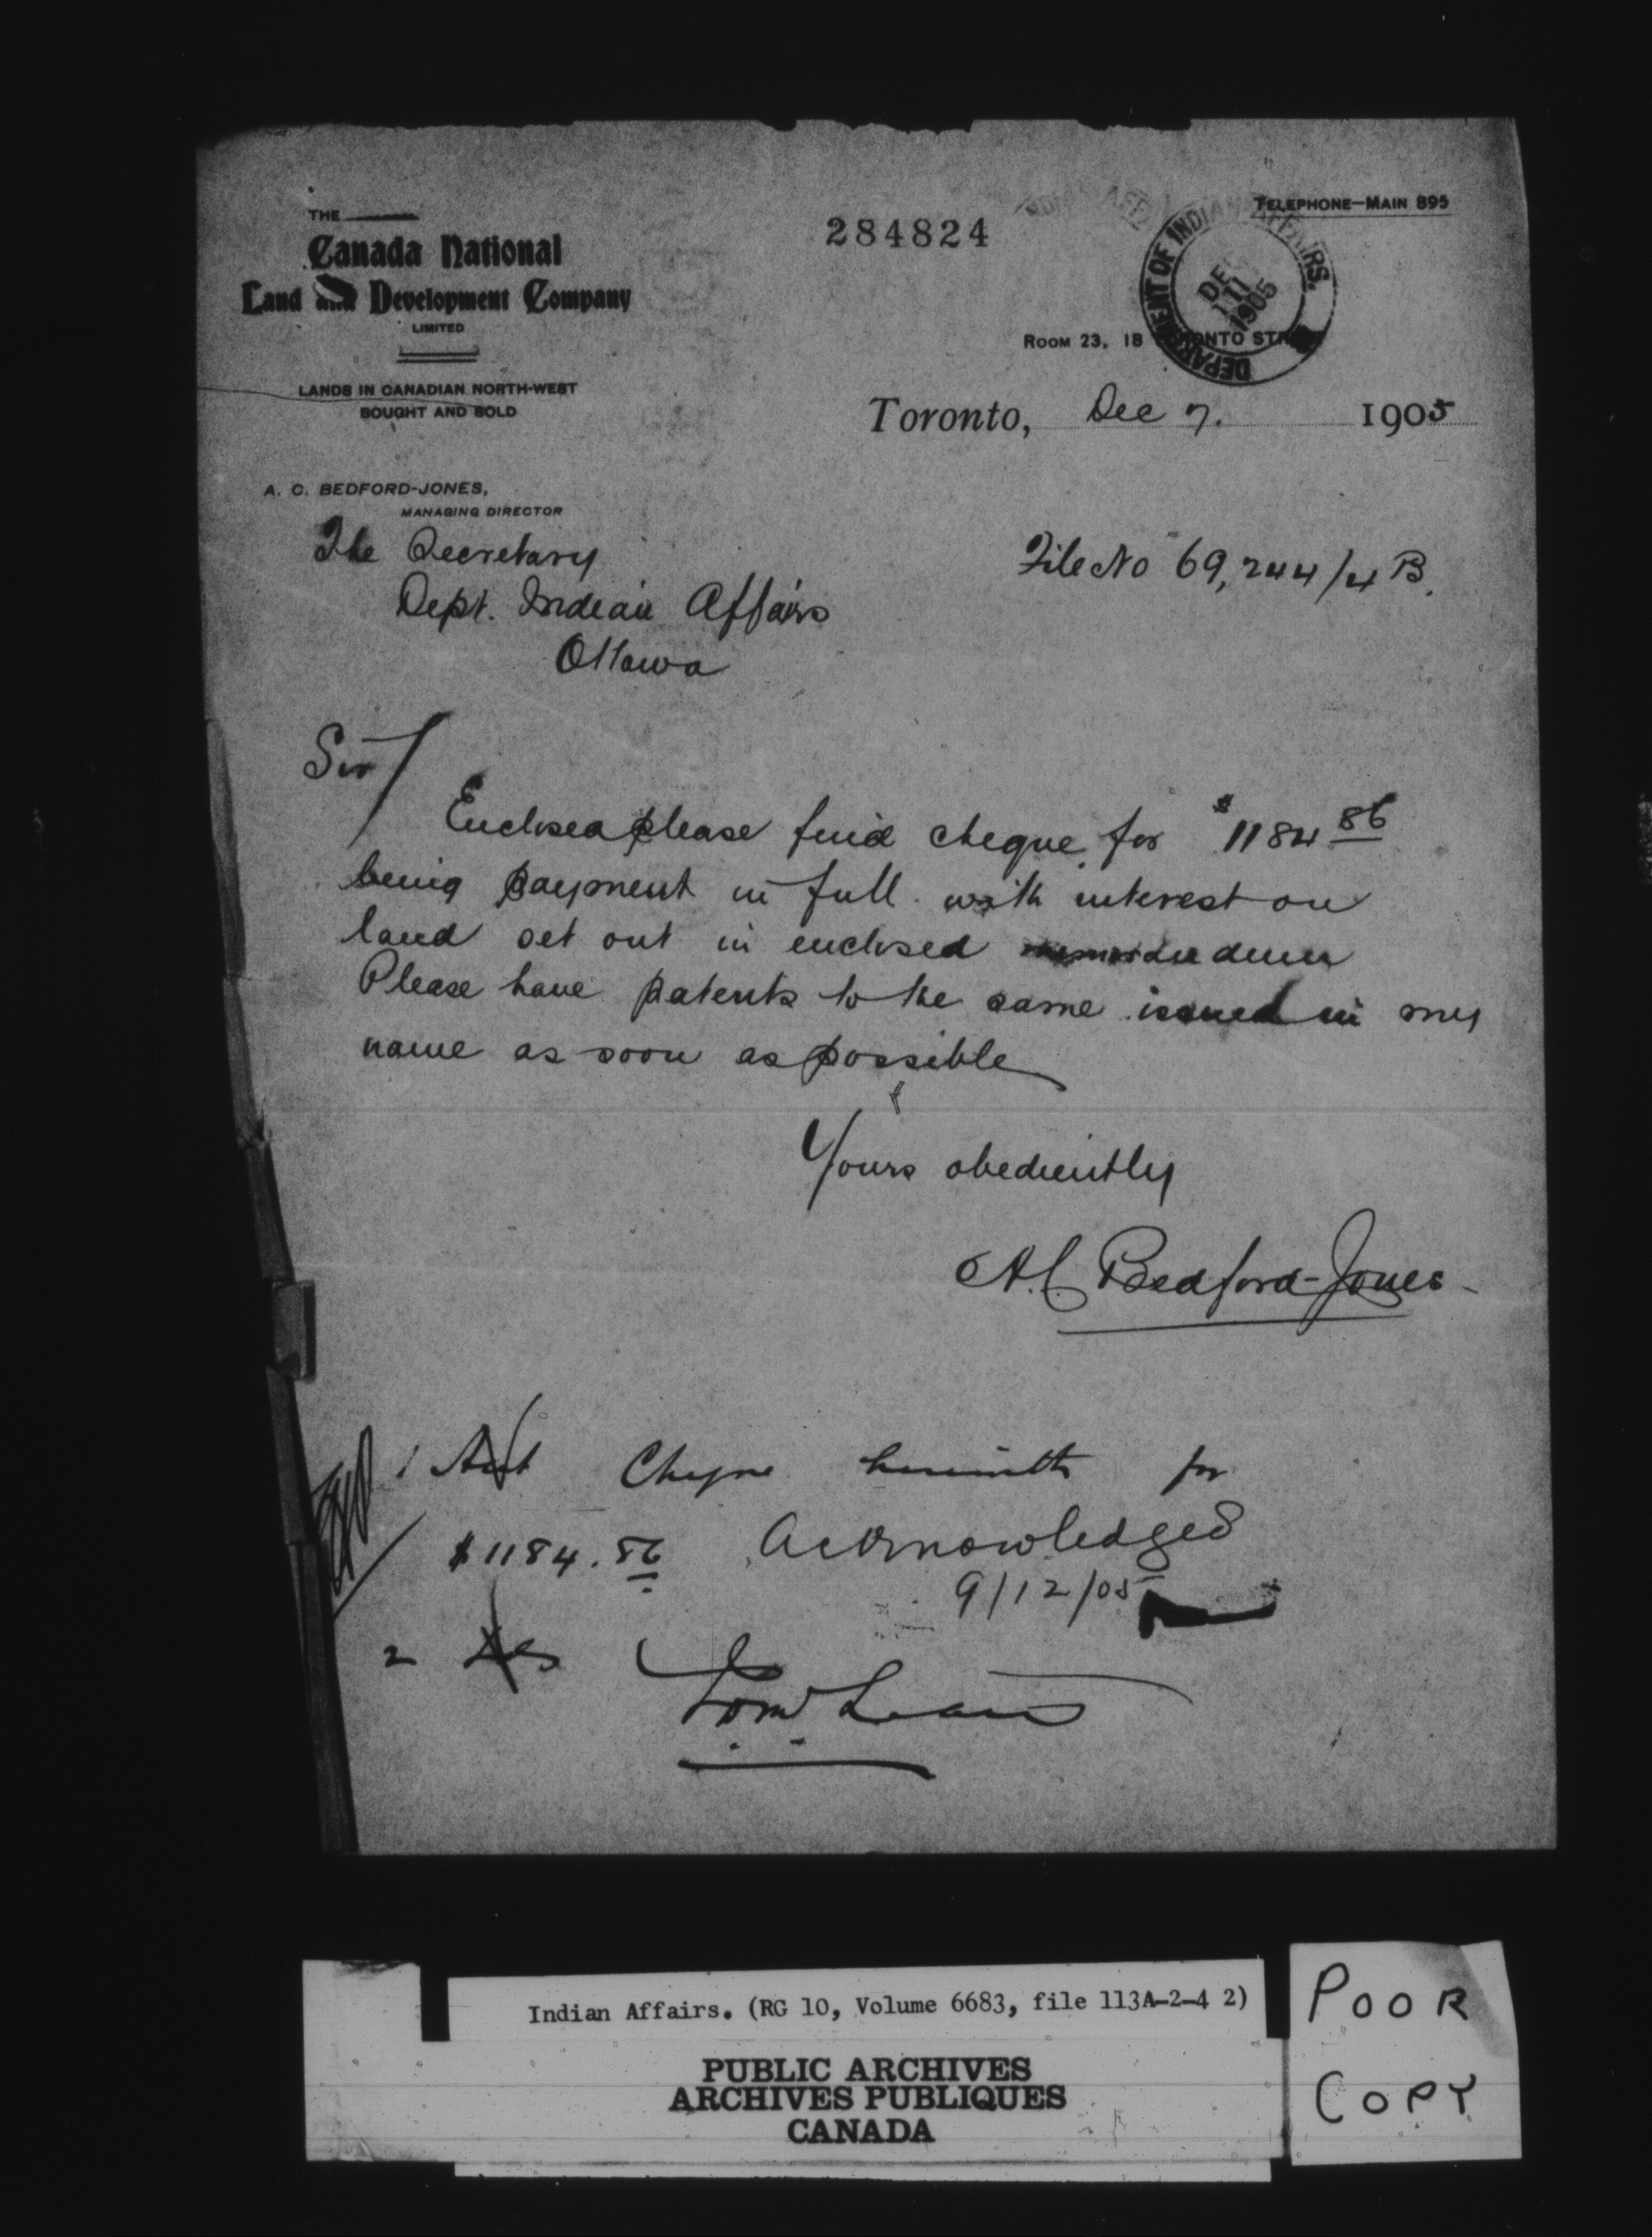 THE
Canada National
Land and Development Company
LIMITED
LANDS IN CANADIAN NORTH-WEST
BOUGHT AND SOLD
284824
TELEPHONE-MAIN 895
DEPARTMENT OF INDIAN AFFAIRS.
DE 11 1905
ROOM 23, 18 TORONTO STREET
Toronto, Dec 7. 1905
A. C. BEDFORD-JONES,
MANAGING DIRECTOR
The Secretary
Dept. Indian Affairs
Ottawa
File No 69,244/4 B.
Sir/
Enclosed please find cheque for $1184 86
being payment in full with interest on
land set out in enclosed memorandum
Please have patents to the same issued in my
name as soon as possible
Yours obediently
A.C. Bedford-Jones
1 Acct Cheque herewith for
$1184.86 Acknowledged
9/12/05
2
Indian Affairs. (RG 10, Volume 6683, file 113A-2-4 2)
PUBLIC ARCHIVES
ARCHIVES PUBLIQUES
CANADA
POOR
COPY